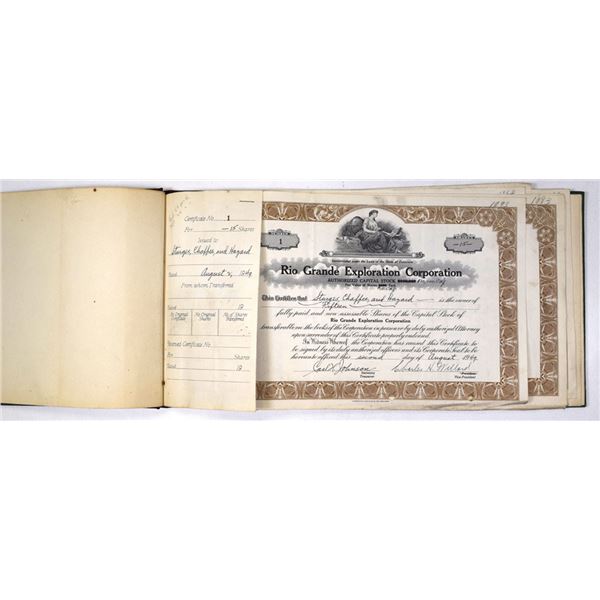 Certificate No. 1
For —15— Shares
Issued to
Sturges, Chaffee, and Hazard
Dated August 2, 1949
From whom Transferred
19
No Original Certificate
No Original Shares
No. of Shares Transferred
Received Certificate No.
For Shares
19
19
1892
NUMBER
1
—15—
Rio Grande Exploration Corporation
AUTHORIZED CAPITAL STOCK
This Certifies that Sturges, Chaffee, and Hazard is the owner of
Fifteen
fully paid and non assessable Shares of the Capital Stock of
Rio Grande Exploration Corporation
transferable on the books of the Corporation in person or by duly authorized Attorney
upon surrender of this Certificate properly endorsed.
In Witness Whereof the Corporation has caused this Certificate to
be signed by its duly authorized officers and its Corporate Seal to be
hereunto affixed this second day of August 1949
Carl Johnson
Charles H.
Secretary
Treasurer
President
Vice-President